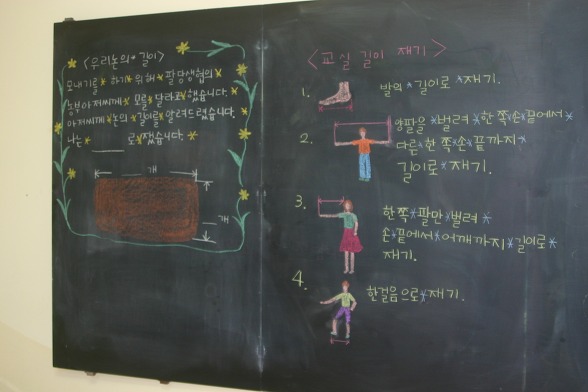 <우리논의 길이>
모내기를 하기 위해 팔당생협의
농부아저씨께 모를 달라고 했습니다.
아저씨께 논의 길이를 알려드렸습니다.
나는 ____ 로 쟀습니다.
개
개
<교실 길이 재기>
1. 발의 길이로 재기.
2. 양팔을 벌려 한쪽손끝에서
다른 한쪽손 끝까지
길이로 재기.
3. 한쪽 팔만 벌려
손끝에서 어깨까지 길이로
재기.
4. 한걸음으로 재기.